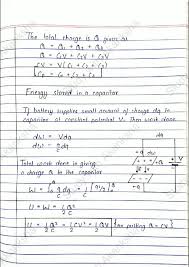 The total charge is Q given as
Q = Q₁ + Q₂ + Q₃
Q = C₁V + C₂V + C₃V
CV = V(C₁ + C₂ + C₃)
Cp = C₁ + C₂ + C₃
Energy stored in a capacitor
If battery supplies small amount of charge dq to
capacitor at constant potential V. Then work done.
dW = Vdq
dW = q/C dq
Total work done in giving
a charge Q to the capacitor
U = W = 1/C [q²/2]
U = W = Q²/2C
U = 1/2 Q²/C = 1/2 CV² = 1/2 QV [on putting Q = CV]